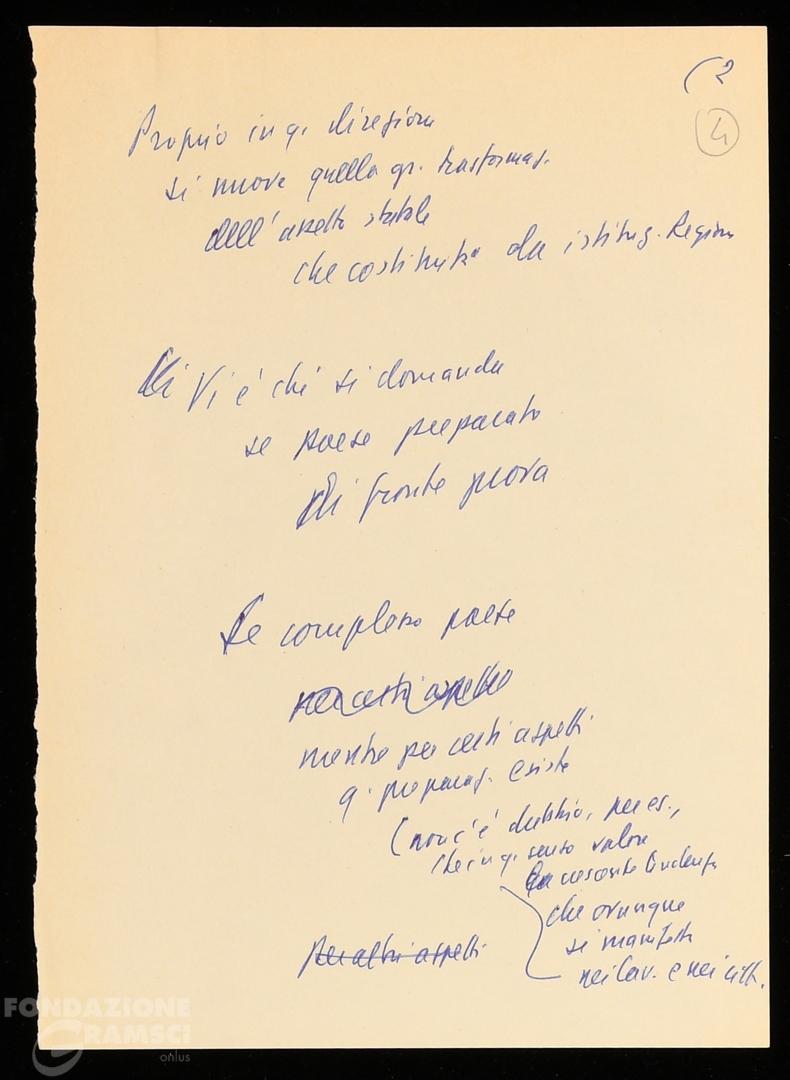 (2
4
Proprio in q. direzione
si muove quella gr. trasformaz.
dell'assetto statale
che costituita da istituz. Regioni
Vi è chi si domanda
se paese preparato
di fronte prova
Se complesso paese
per certi aspetti
mentre per certi aspetti
q. preparaz. esiste
(non c'è dubbio, per es.,
che in q. senso valore
la crescente tendenza
che ovunque
si manifesta
per altri aspetti
nei lav. e nei citt.
FONDAZIONE
GRAMSCI
onlus